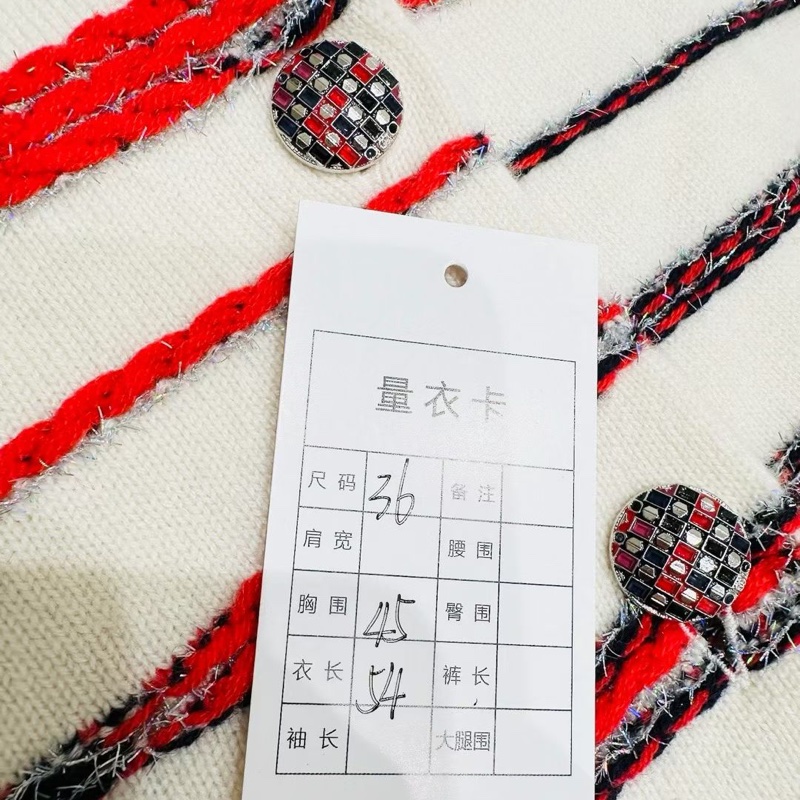 量衣卡
尺码 36 备注
肩宽 腰围
胸围 45 臀围
衣长 54 裤长
袖长 大腿围